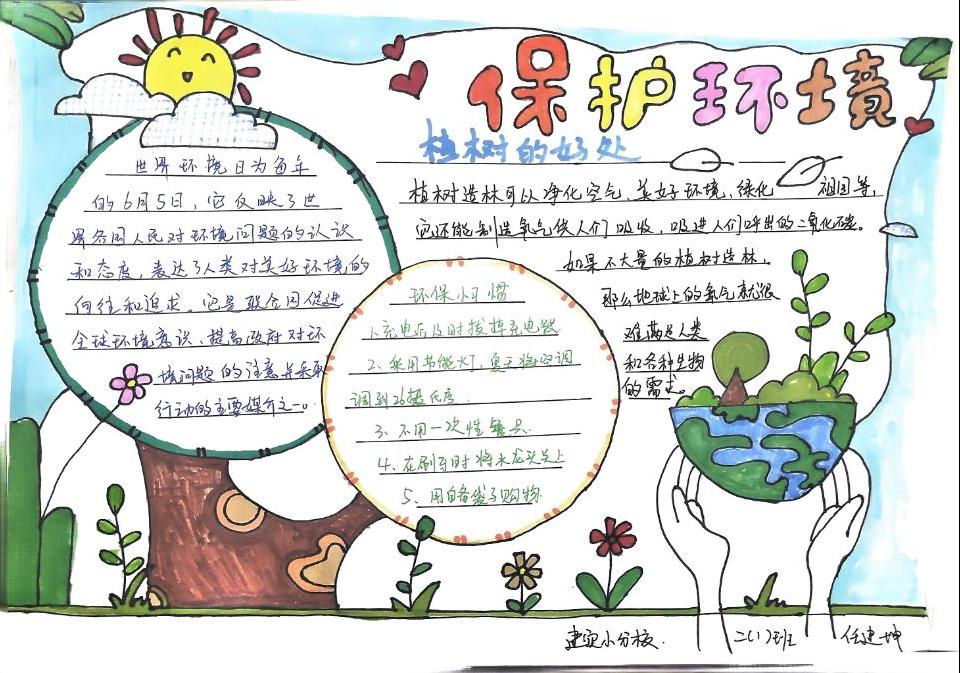 保护环境
植树的好处
世界环境日为每年
的6月5日，它反映了世
界各国人民对环境问题的认识
和态度，表达了人类对美好环境的
向往和追求。它是联合国促进
全球环境意识、提高政府对环
境问题的注意并采取
行动的主要媒介之一。
植树造林可以净化空气、美好环境、绿化祖国等，
它还能制造氧气供人们吸收，吸进人们呼出的二氧化碳。
如果不大量的植树造林，
那么地球上的氧气就很
难满足人类
和各种生物
的需求。
环保小习惯
1、充电后及时拔掉充电器
2、采用节能灯，夏天将空调
调到26摄氏度
3、不用一次性餐具
4、在刷牙时将水龙头关上
5、用自备袋子购物
建安小分校
二(1)班
任建坤